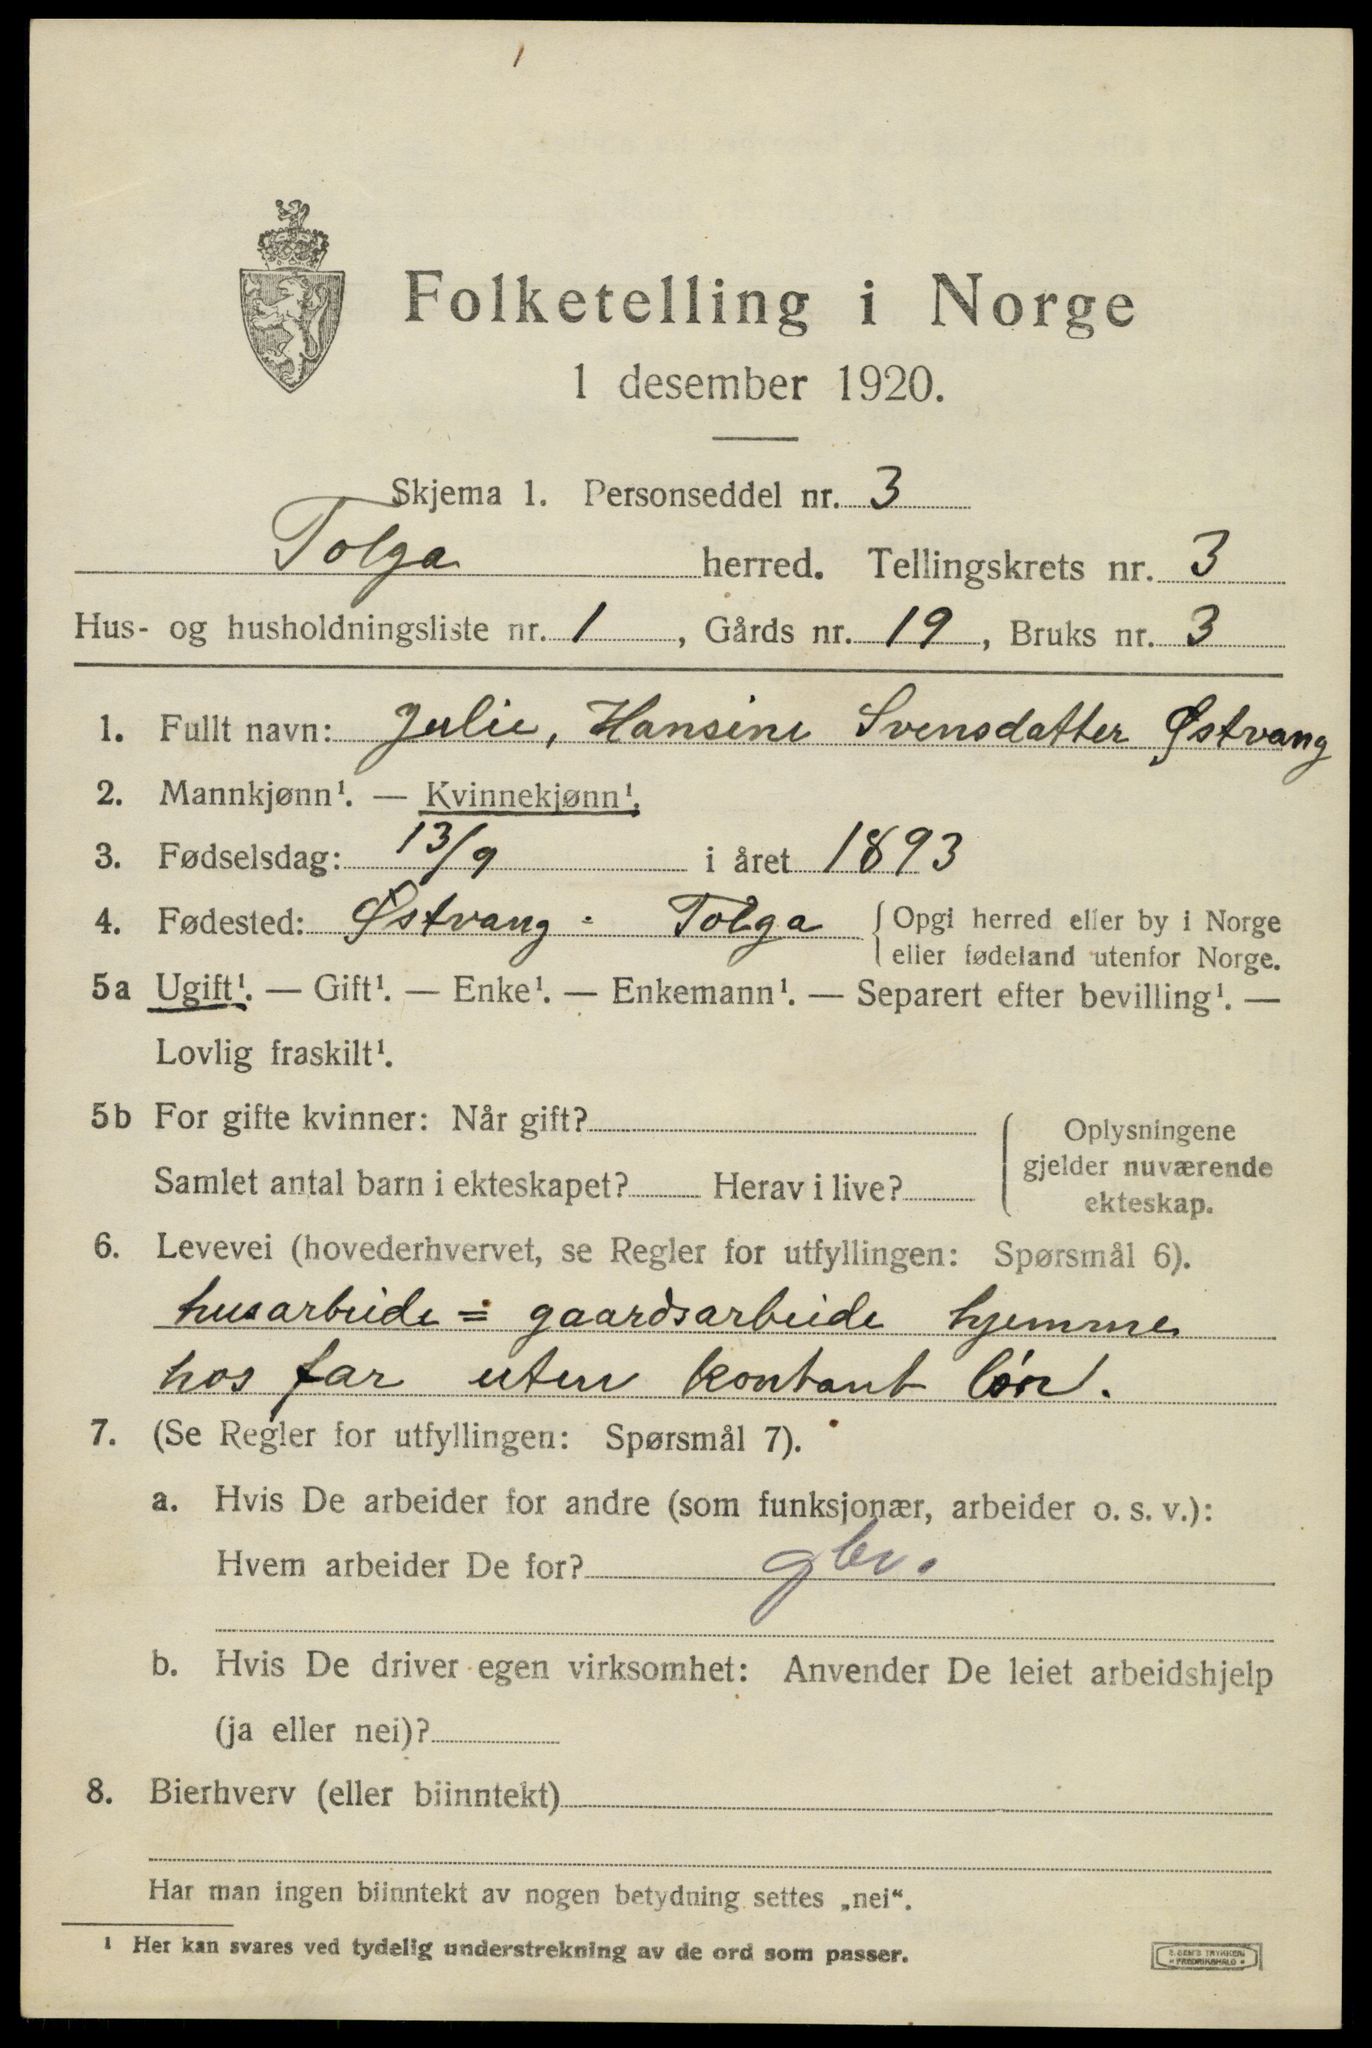 Folketelling i Norge
1 desember 1920.
Skjema 1. Personseddel nr. 3
Tolga herred. Tellingskrets nr. 3
Hus- og husholdningsliste nr. 1, Gårds nr. 19, Bruks nr. 3
1. Fullt navn: Julie, Hansine Svensdatter Østvang
2. Mannkjønn¹. — Kvinnekjønn¹.
3. Fødselsdag: 13/9 i året 1893
4. Fødested: Østvang - Tolga {Opgi herred eller by i Norge
eller fødeland utenfor Norge.
5a Ugift¹. — Gift¹. — Enke¹. — Enkemann¹. — Separert efter bevilling¹. —
Lovlig fraskilt¹.
5b For gifte kvinner: Når gift?
Samlet antal barn i ekteskapet? Herav i live?
Oplysningene
gjelder nuværende
ekteskap.
6. Levevei (hovederhvervet, se Regler for utfyllingen: Spørsmål 6).
husarbeide = gaardsarbeide hjemme
hos far uten kontant løn.
7. (Se Regler for utfyllingen: Spørsmål 7).
a. Hvis De arbeider for andre (som funksjonær, arbeider o. s. v.):
Hvem arbeider De for? gbr.
b. Hvis De driver egen virksomhet: Anvender De leiet arbeidshjelp
(ja eller nei)?
8. Bierhverv (eller biinntekt)
Har man ingen biinntekt av nogen betydning settes „nei“.
¹ Her kan svares ved tydelig understrekning av de ord som passer.